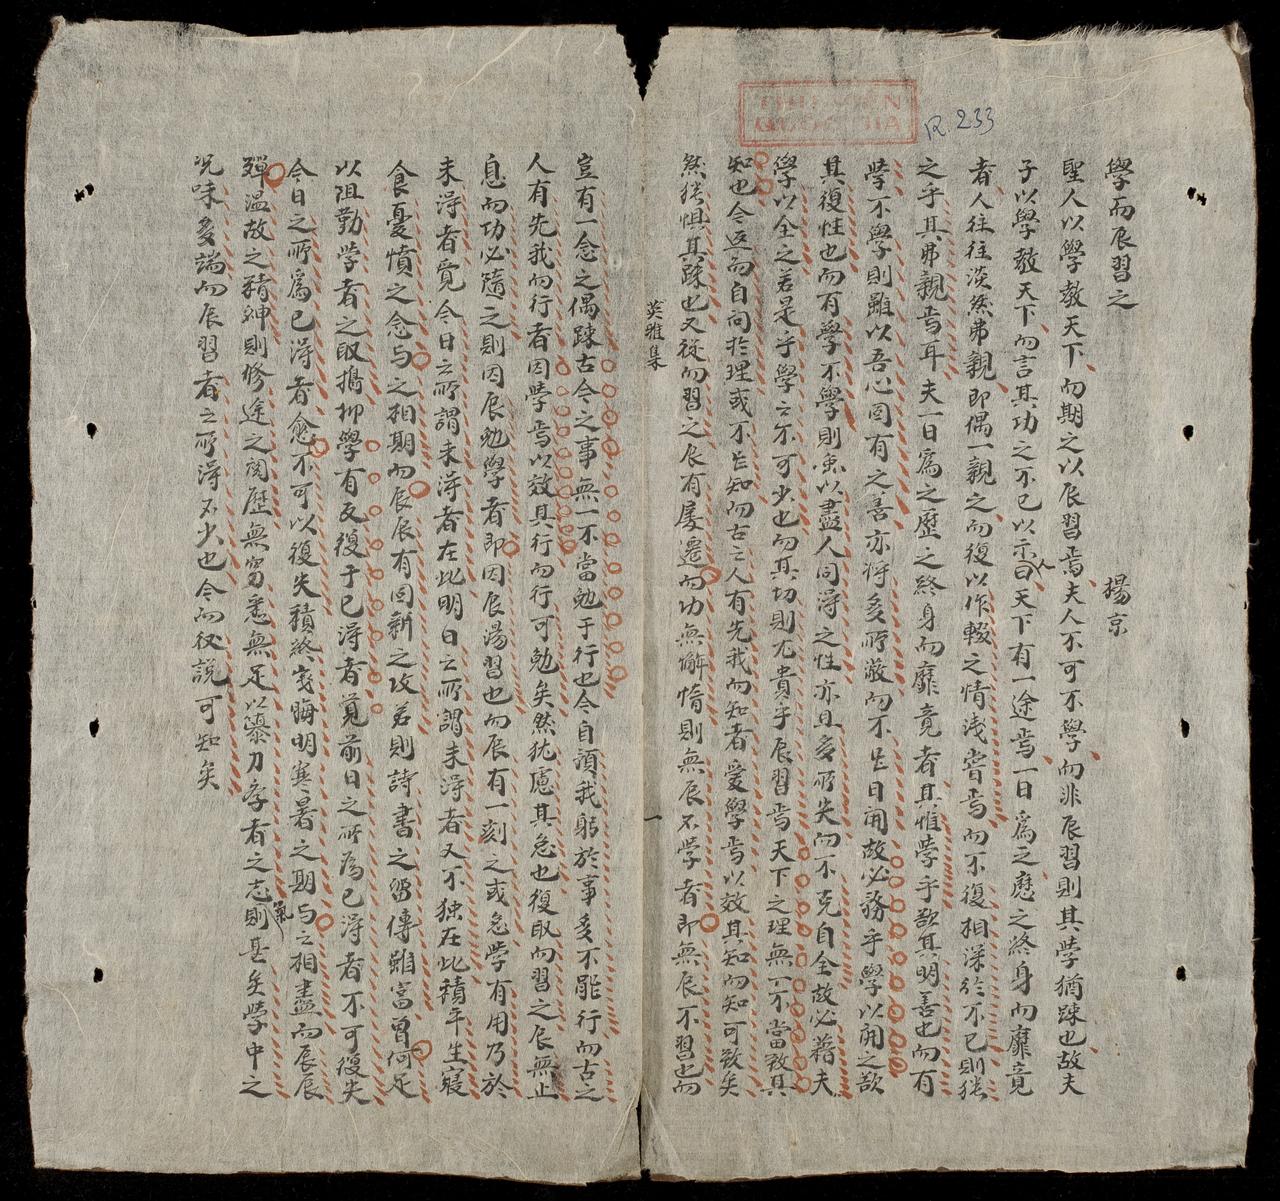 THU VIEN
QUOC GIA
R.233
學而辰習之
楊京
聖人以學教天下而期之以辰習焉夫人不可不學而非辰習則其學猶踈也故夫
子以學教天下而言其功之不已以示曰天下有一途焉一日為之歷之終身而靡竟
者人往往淡然弗親即偶一親之而復以作輟之情淺嘗焉而不復相深於不已則
之乎其弗親焉耳夫一日為之歷之終身而靡竟者其惟學乎欲其明善也而有
學不學則雖以吾心固有之善亦將多所蔽而不
日開故必務乎學以開之欲
其復性也而有學不學則雖以盡人同得之性亦且多所失而不克自全故必藉夫
學以全之若是乎學之不可少也而其切則尤貴乎辰習焉天下之理無一不當致其
知也今返而自问於理或不
知而古之人有先我而知者爰學焉以效其知而知可致矣
然猶惧其踈也又從而習之辰有屢遷而功無懈惰則無辰不學者即無辰不習也而
英雅集
一
豈有一念之偶踈古今之事無一不當勉于行也今自頋我躬於事多不能行而古之
人有先我而行者因學焉以效其行而行可勉矣然犹慮其怠也復取而習之辰無止
息而功必隨之則因辰勉學者即因辰温習也而辰有一刻之或怠學有用乃於
未得者覓今日之所謂未得者在此明日之所謂未得者又不独在此積平生寢
食憂憤之念与之相期而辰辰有回新之攻若則詩書之留傳雖富曽何足
以阻勤學者之取携抑學有反復于已得者覓前日之所為已得者不可復失
今日之所為已得者愈不可以復失積終
晦明寒暑之期与之相盡而辰辰
殫温故之精神則修途之閱歷無窮悉無足以
力學者之志氣則甚矣學中之
况味多端而辰習者之所得不少也合而
說可知矣